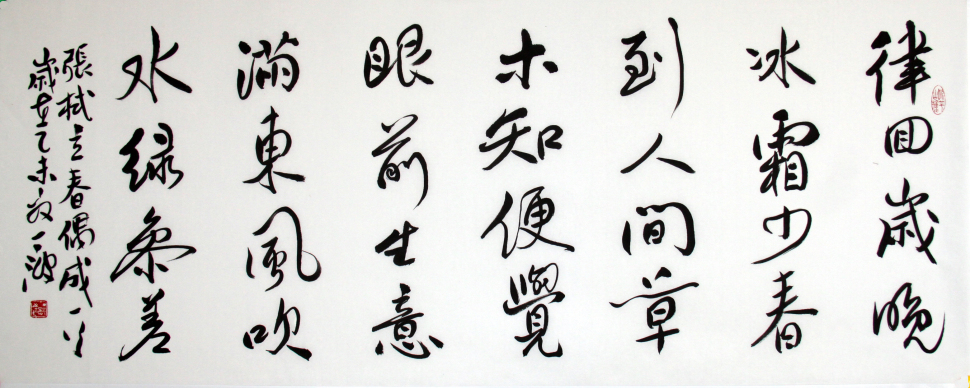 律回歲晚
冰霜少春
到人間草
木知便覺
眼前生意
滿東風吹
水綠參差
張栻立春偶成一首
歲在乙未